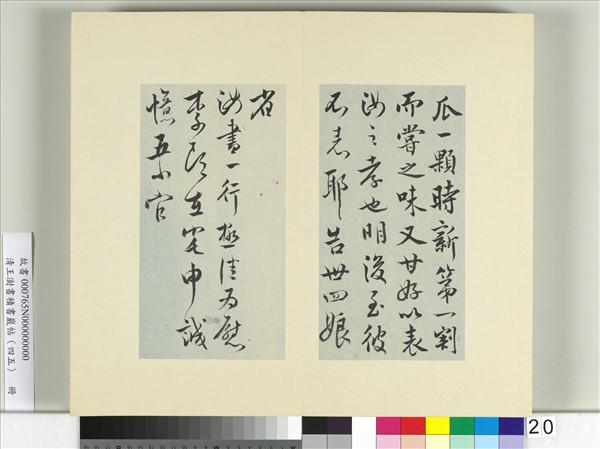 瓜一顆時新第一割
而嘗之味又甘好以表
汝之孝也明後至彼
不悉耶〻告卅四娘
省
汝書一行極佳為慰
在宅申誠
憶五小官
故書 000765N000000000
清王澍書積書巖帖（四五） 冊
20